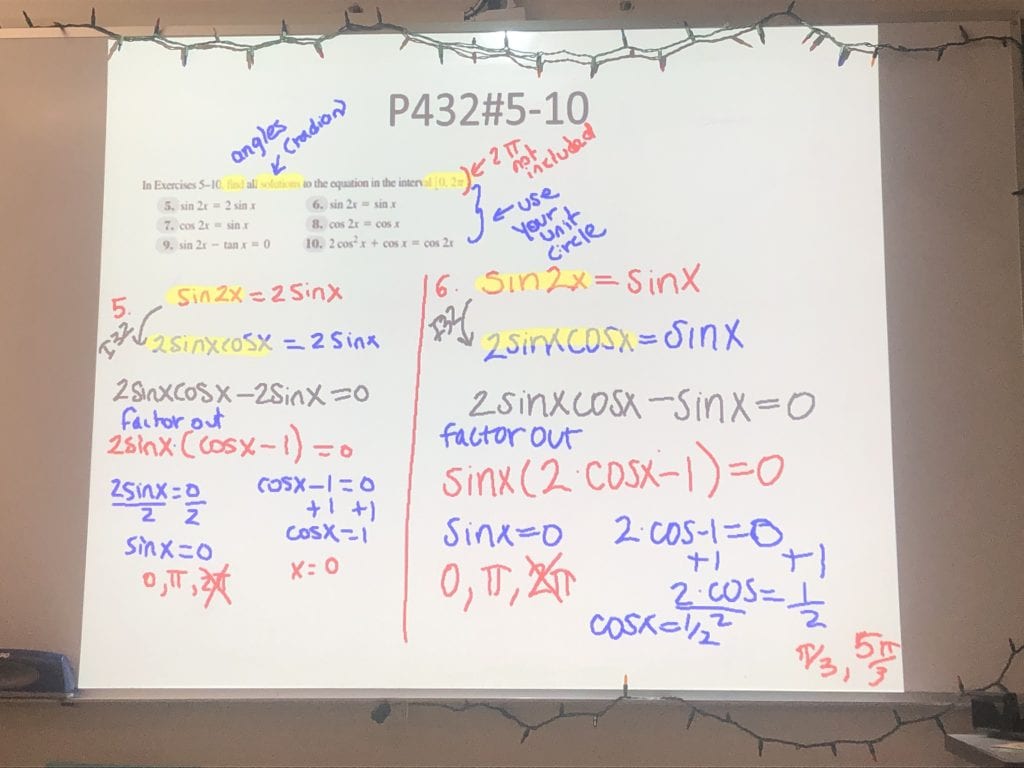 P432#5-10
angles
(radion)
← 2π
not
included
In Exercises 5–10, find all solutions to the equation in the interval [0, 2π)
5. sin 2x = 2 sin x
6. sin 2x = sin x
7. cos 2x = sin x
8. cos 2x = cos x
9. sin 2x − tan x = 0
10. 2 cos² x + cos x = cos 2x
← use
your
unit
circle
5. sin2x = 2 sinx
2sinxcosx = 2 sinx
2sinxcosx − 2sinx = 0
factor out
2sinx·(cosx − 1) = 0
2sinx = 0
2 2
sinx = 0
0, π, 2π
cosx − 1 = 0
+1 +1
cosx = 1
x = 0
6. sin2x = sinx
2sinxcosx = sinx
2sinxcosx − sinx = 0
factor out
sinx(2·cosx−1) = 0
sinx = 0
0, π, 2π
2·cos-1 = 0
+1 +1
2·cos = 1
2 2
cosx = 1/2
π/3, 5π/3